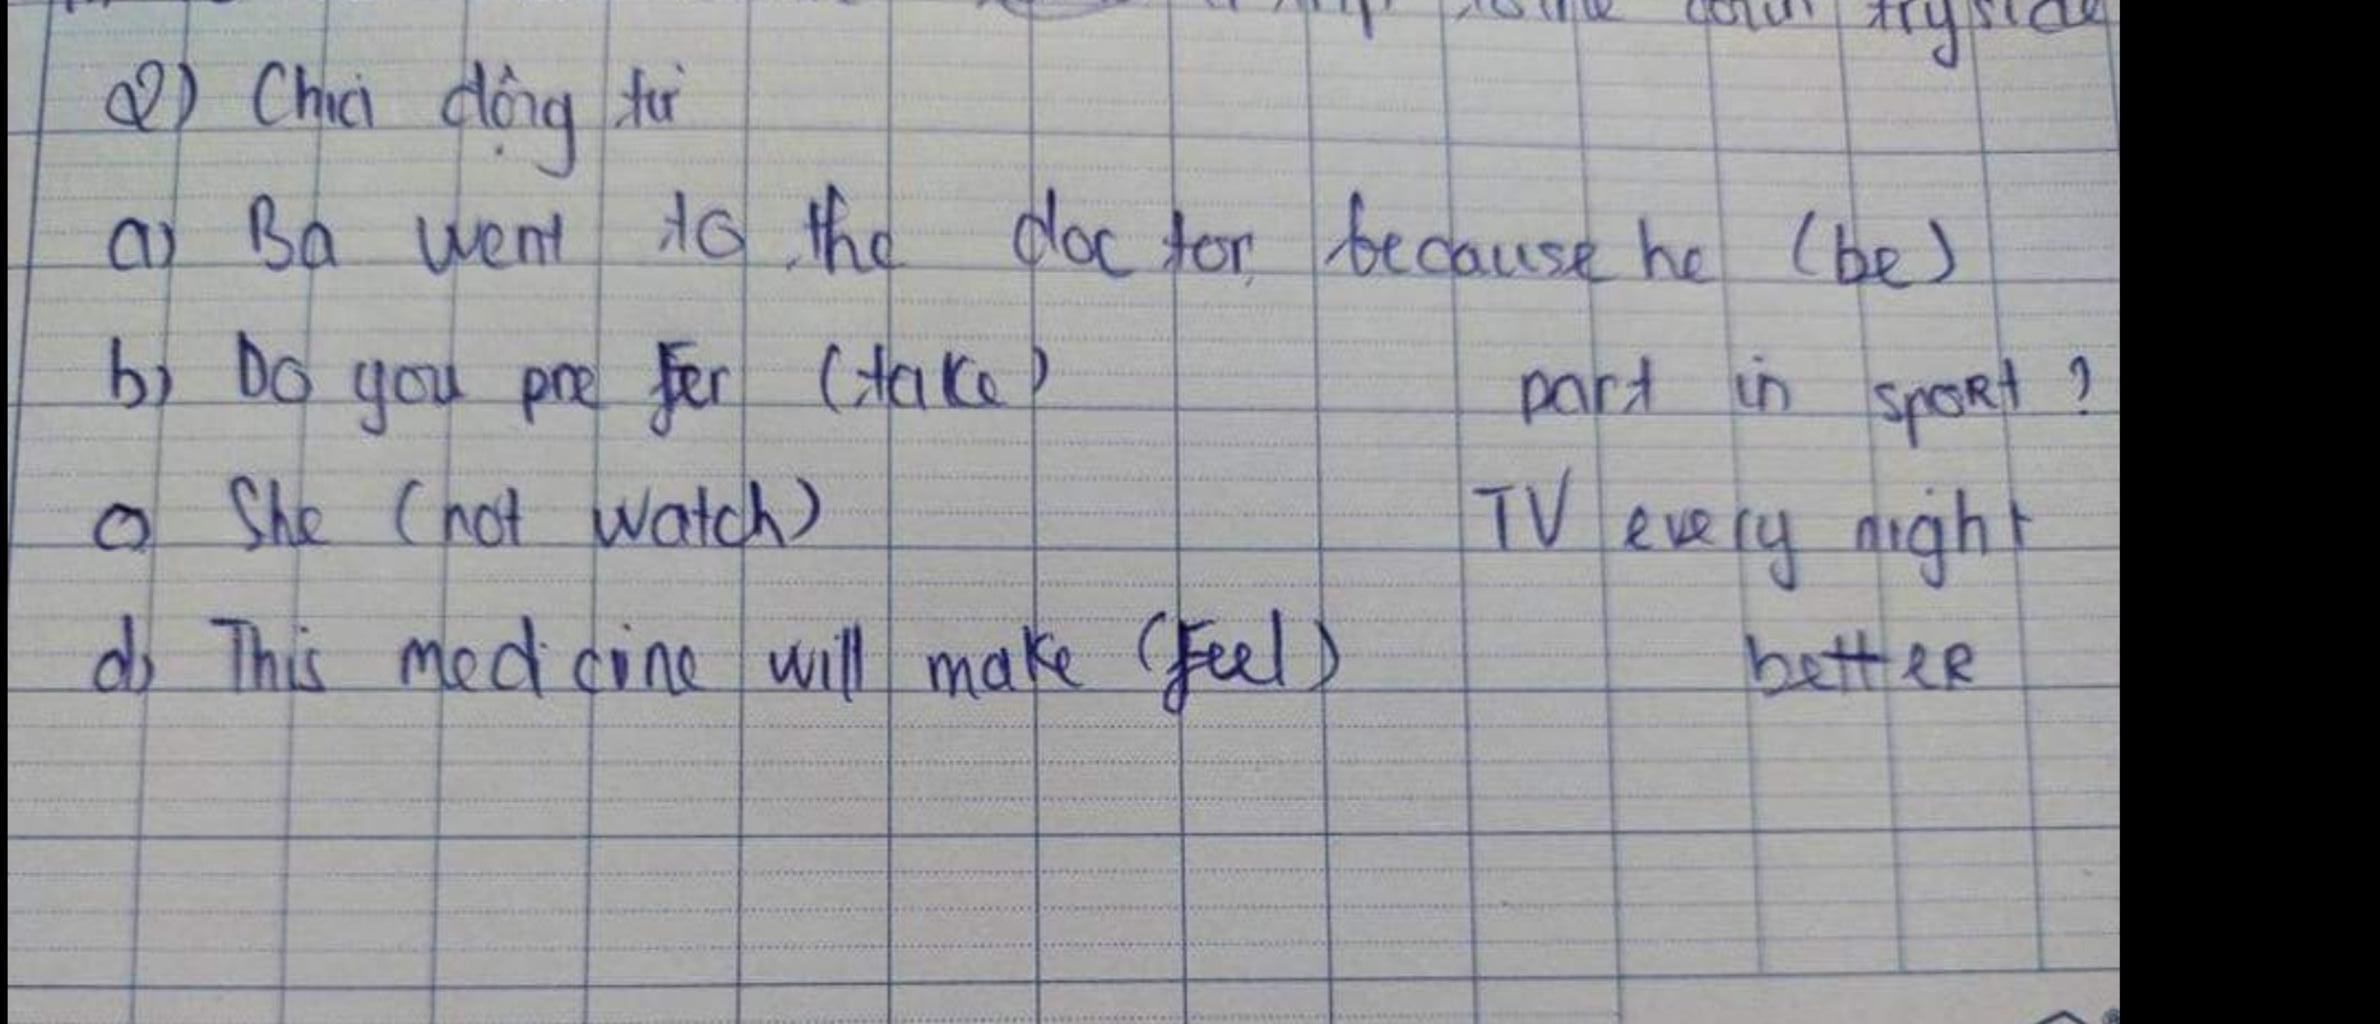 2) Chia động từ
a) Ba went to the doctor because he (be)
b) Do you prefer (take) part in sport ?
c) She (not watch) TV every night
d) This medicine will make (feel) better